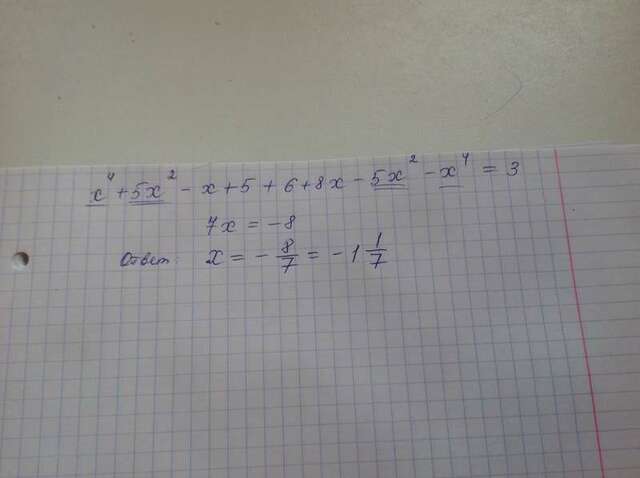 x⁴ + 5x² - x + 5 + 6 + 8x - 5x² - x⁴ = 3
7x = -8
Ответ: x = - 8/7 = -1 1/7